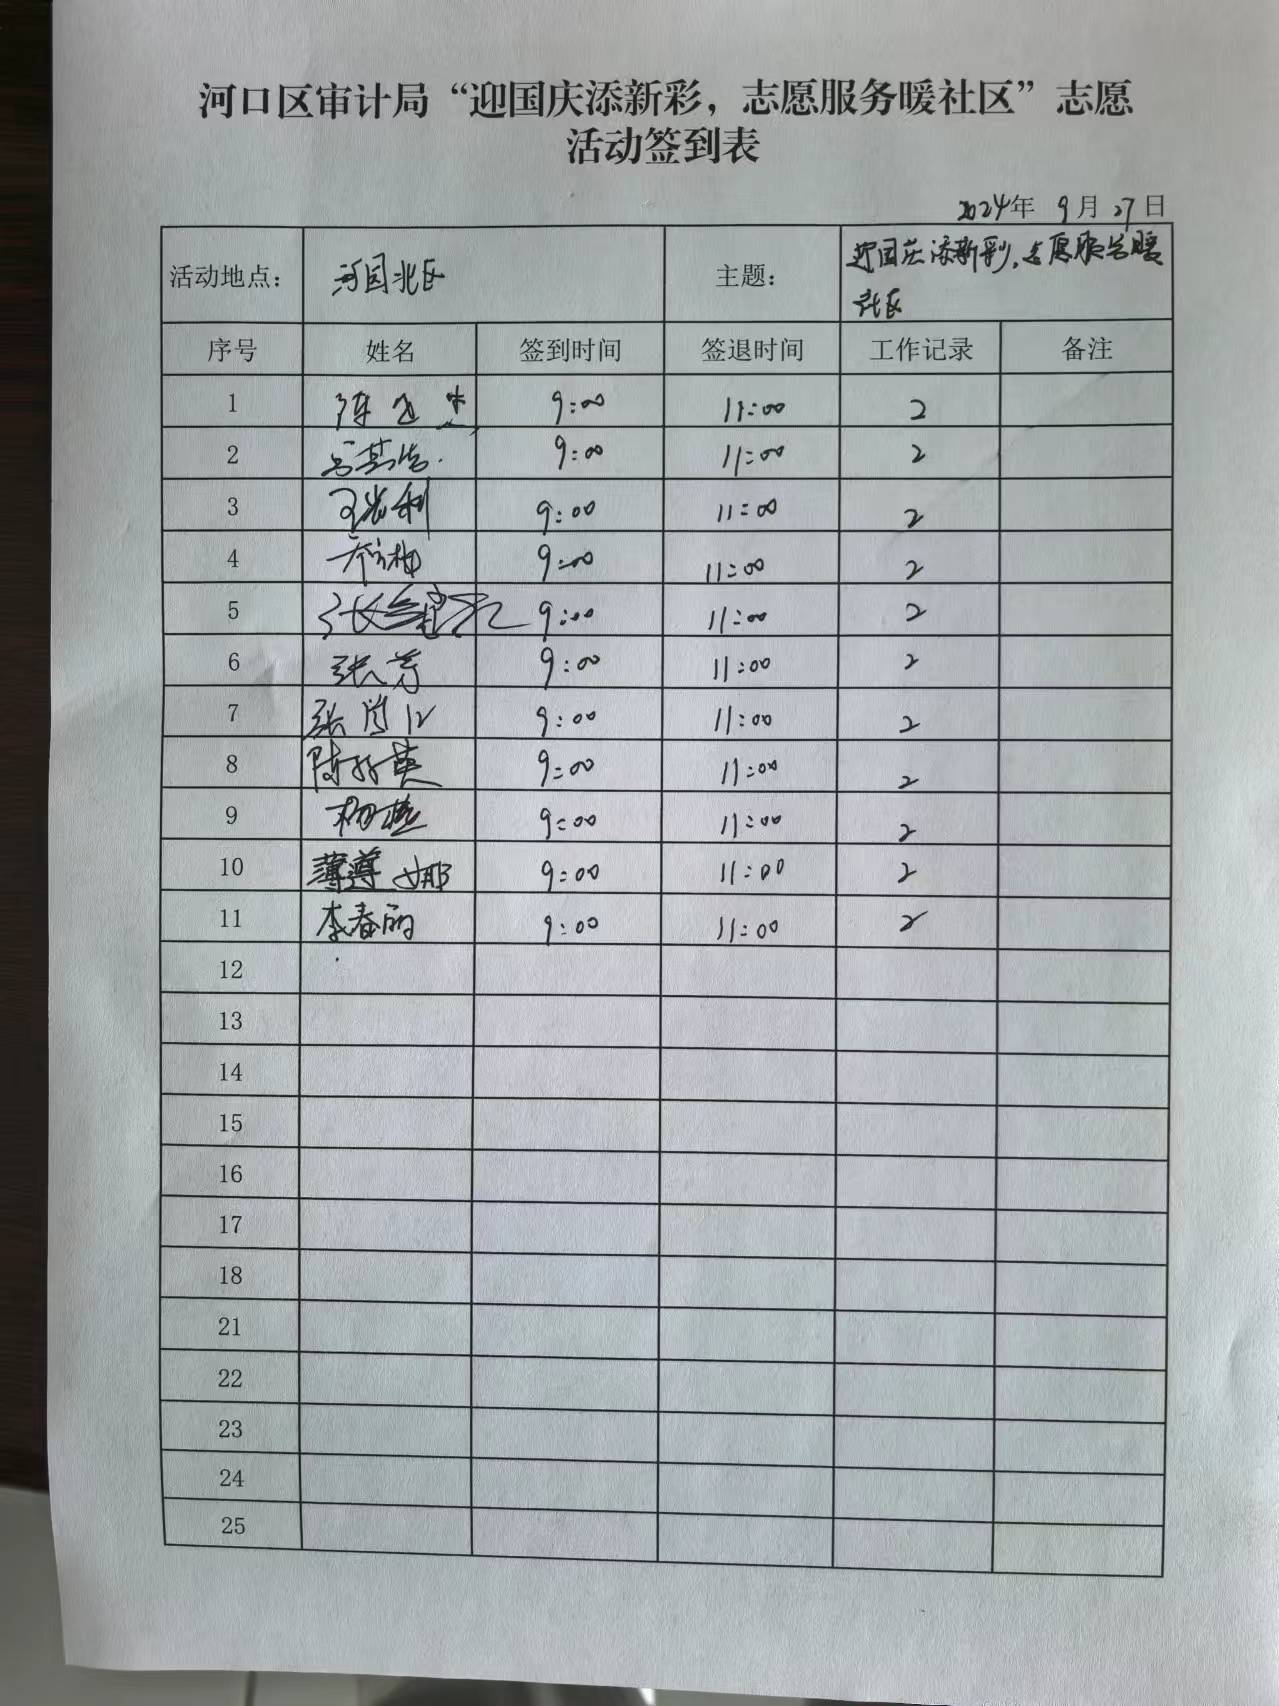 河口区审计局“迎国庆添新彩，志愿服务暖社区”志愿
活动签到表
2024年 9月27日
活动地点： 河园北区 主题： 迎国庆添新彩，志愿服务暖
社区
序号 姓名 签到时间 签退时间 工作记录 备注
1 陈 9:00 11:00 2
2 9:00 11:00 2
3 9:00 11:00 2
4 9:00 11:00 2
5 张 9:00 11:00 2
6 张芳 9:00 11:00 2
7 张 9:00 11:00 2
8 陈 英 9:00 11:00 2
9 9:00 11:00 2
10 薄尊娜 9:00 11:00 2
11 李春丽 9:00 11:00 2
12
13
14
15
16
17
18
21
22
23
24
25